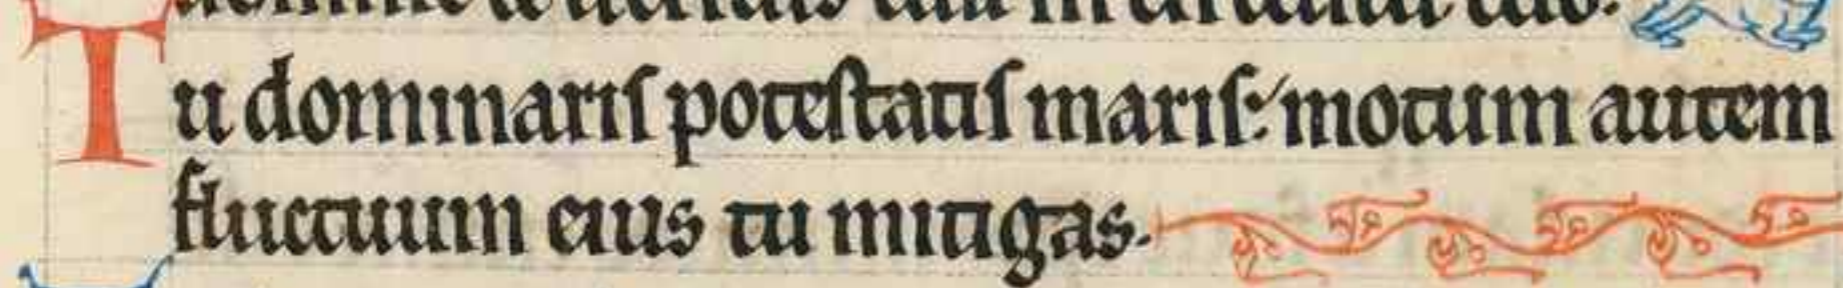 Tu dominariſ poteſtatiſ mariſ: motum autem
fluctuum eius tu mitigas.